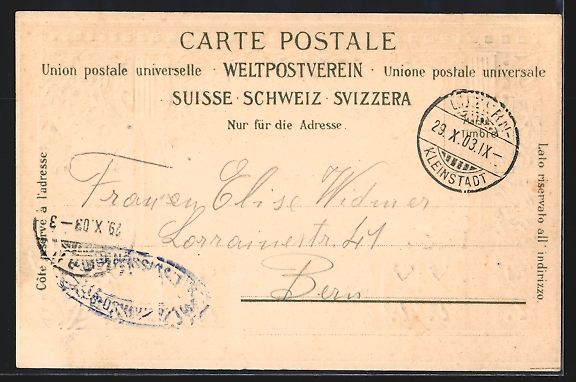 CARTE POSTALE
Union postale universelle · WELTPOSTVEREIN · Unione postale universale
SUISSE · SCHWEIZ · SVIZZERA
Nur für die Adresse.
Côté réservé à l'adresse
Lato riservato all' indirizzo.
LUZERN-
Kein Timbre
29.X.03.IX—
KLEINSTADT
Elise Widmer
Lorrainestr. 41
Bern
29.X.03—3